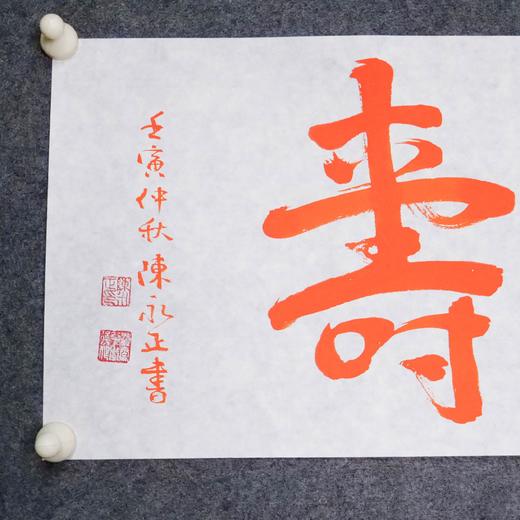 壽
壬寅仲秋陳永正書